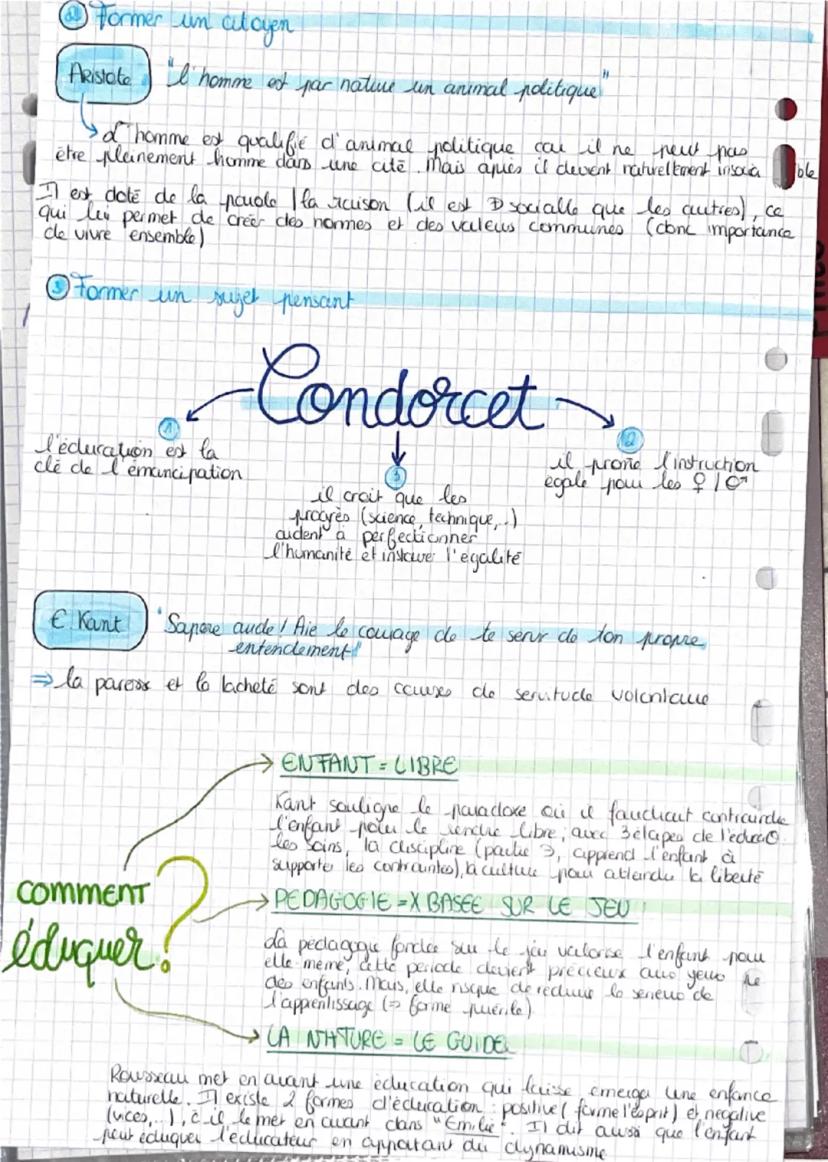 ② Former un citoyen
Aristote "l'homme est par nature un animal politique"
L'homme est qualifié d'animal politique car il ne peut pas
être pleinement homme dans une cité. Mais après il devient naturellement insocia ble
Il est doté de la parole / la raison (il est sociable que les autres), ce
qui lui permet de créer des normes et des valeurs communes (donc importance
de vivre ensemble)
③ Former un sujet pensant
Condorcet
①
l'éducation est la
clé de l'émancipation
②
il prone l'instruction
égale pour les ♀ / ♂
③
il croit que les
progrès (science, technique,..)
aident à perfectionner
l'humanité et instaurer l'égalité
E Kant "Sapere aude! Aie le courage de te servir de ton propre
entendement"
⇒ la paresse et la lacheté sont des causes de servitude volontaire
comment
éduquer?
ENFANT = LIBRE
Kant souligne le paradoxe où il faudrait contraindre
l'enfant pour le rendre libre, avec 3 étapes de l'éduc
les soins, la discipline (partie 3, apprend l'enfant à
supporter les contraintes), la culture pour atteindre la liberté
PEDAGOGIE = X BASEE SUR LE JEU
La pedagogie fondée sur le jeu valorise l'enfant pour
elle meme, cette periode devient précieux aux yeux
des enfants. Mais, elle risque de reduire le serieux de
l'apprentissage (⇒ forme puérile)
LA NATURE = LE GUIDE
Rousseau met en avant une éducation qui laisse emerger une enfance
naturelle. Il existe 2 formes d'éducation : positive (forme l'esprit) et negative
(vices,...), il le met en avant dans "Emile". Il dit aussi que l'enfant
peut éduquer l'éducateur en apportant du dynamisme